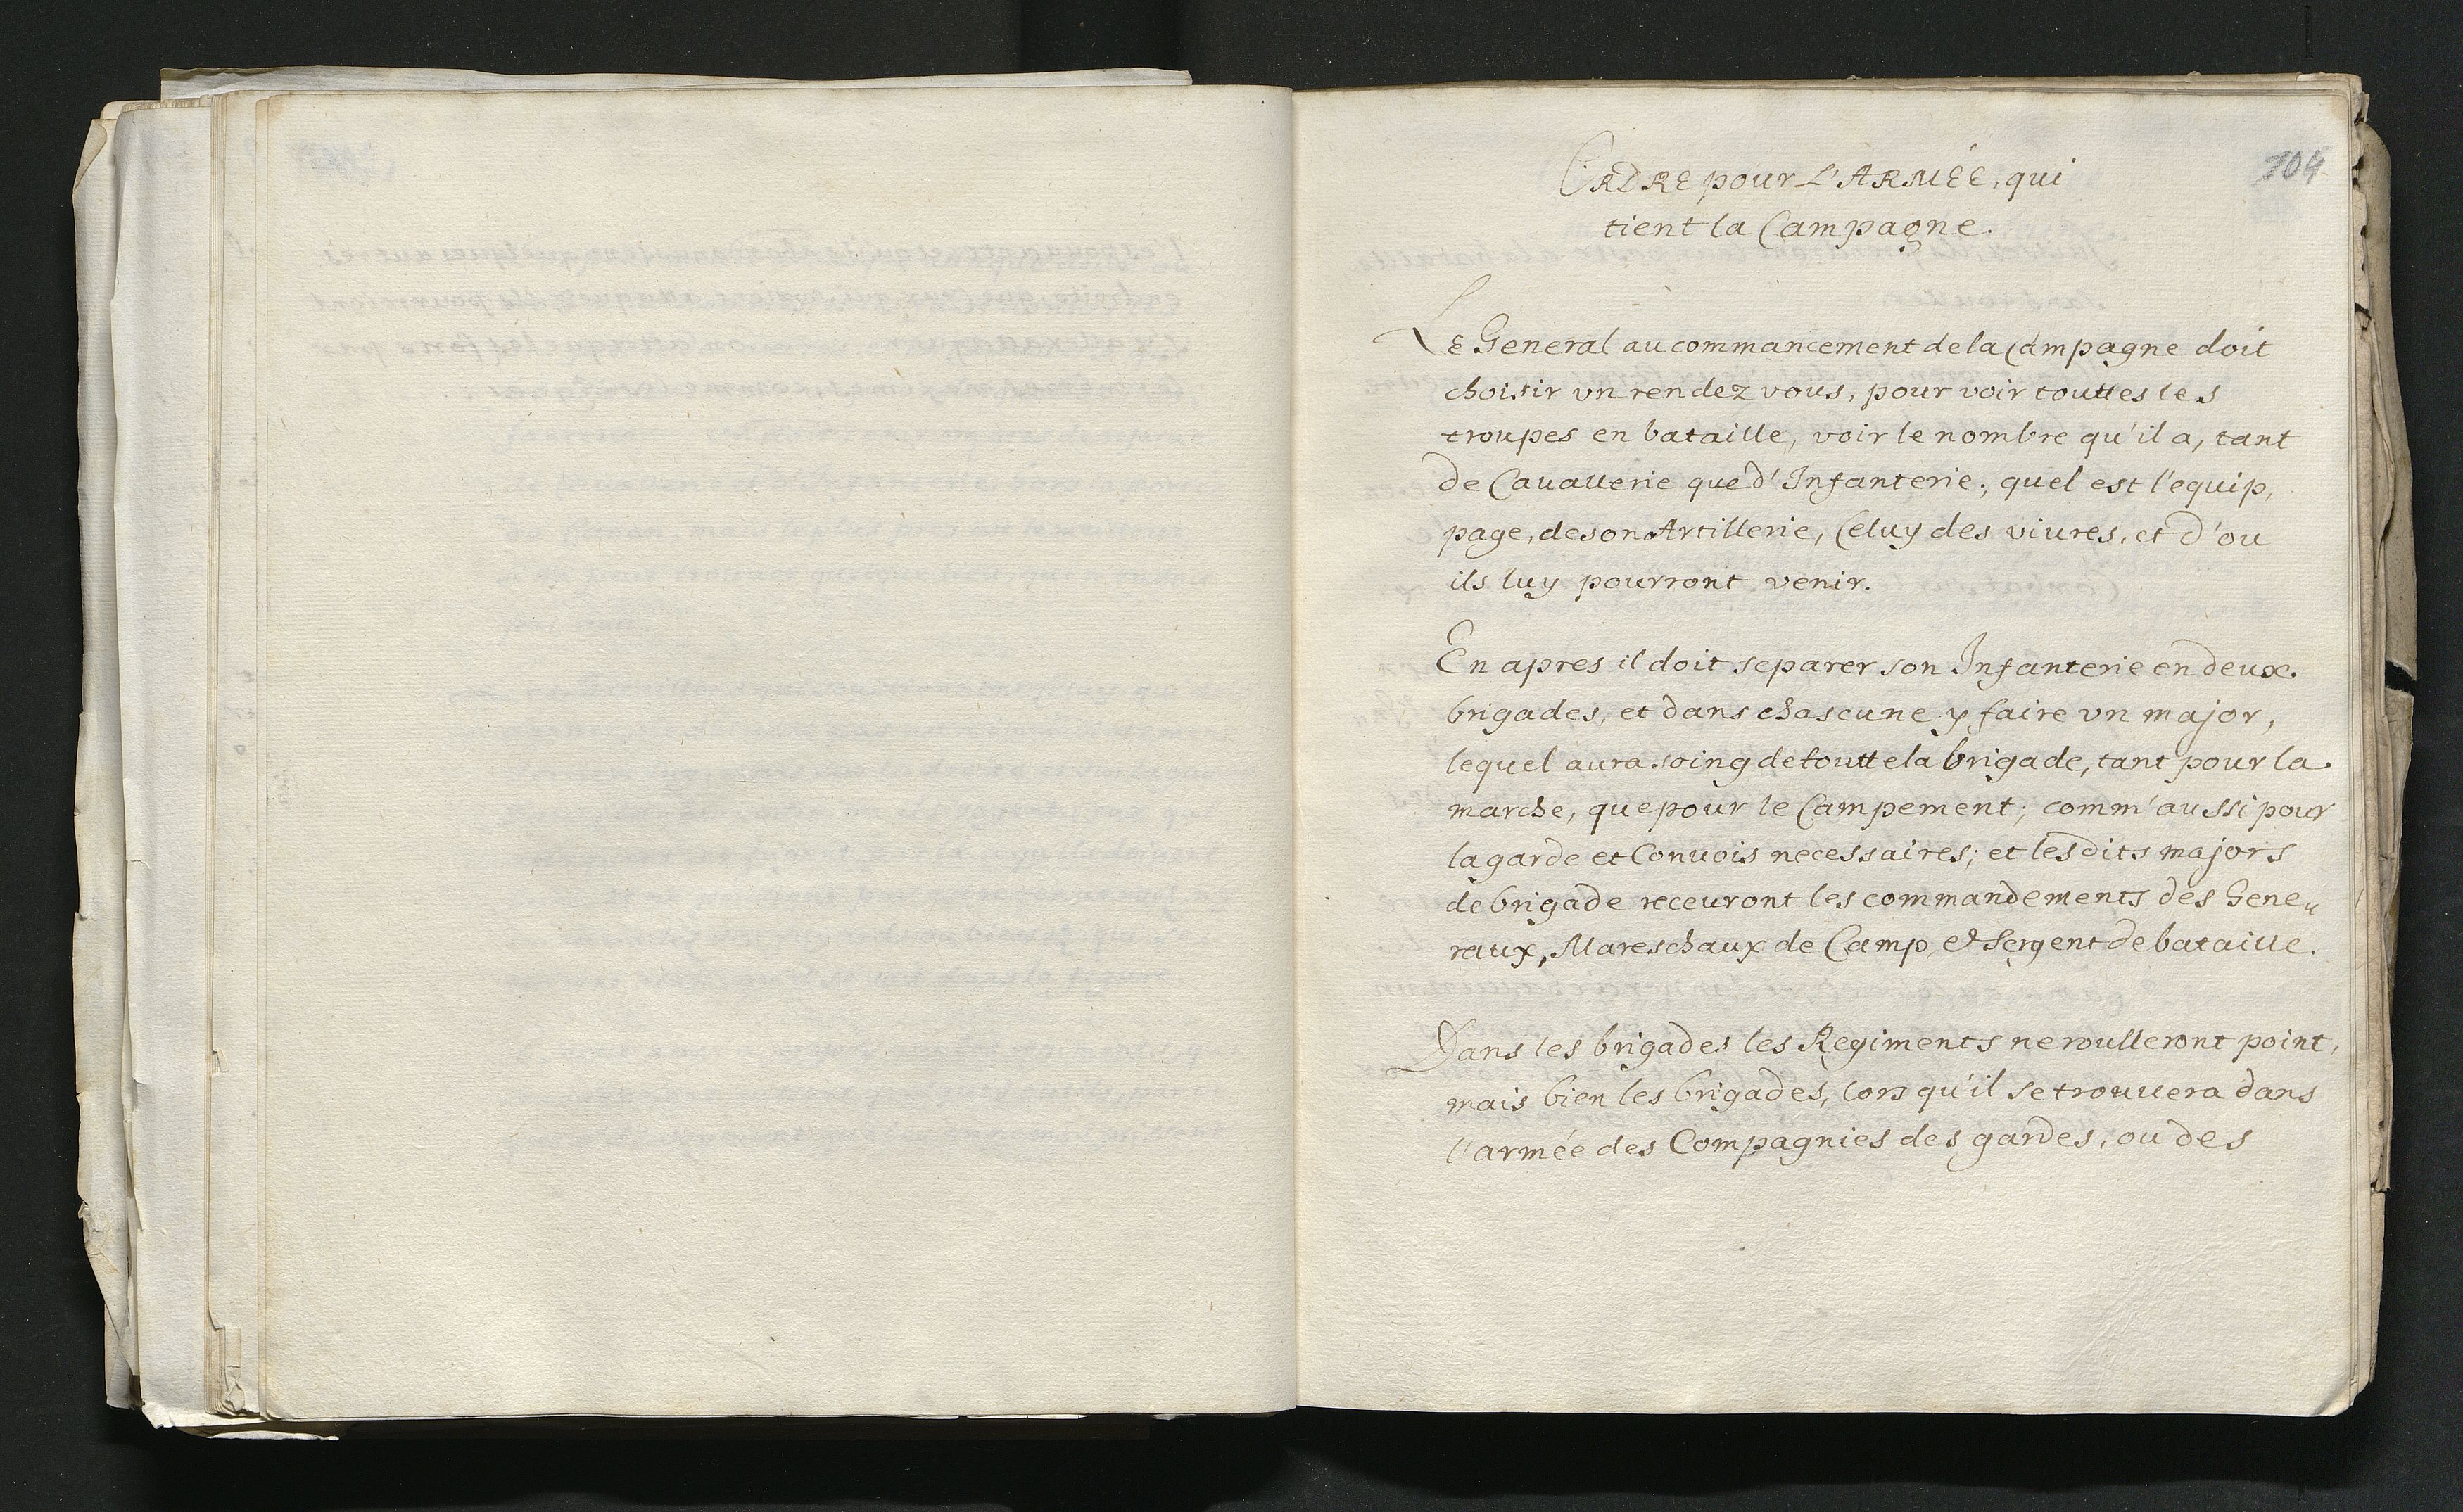 104
ORDRE pour L'ARMÉE, qui
tient la Campagne.
Le General au commancement de la Campagne doit
choisir vn rendez vous, pour voir touttes les
troupes en bataille, voir le nombre qu'il a, tant
de Cauallerie que d'Infanterie; quel est l'equip,
page, de son Artillerie, Celuy des viures, et d'ou
ils luy pourront venir.
En apres il doit separer son Infanterie en deux
brigades, et dans chascune y faire vn major,
lequel aura soing de toutte la brigade, tant pour la
marche, que pour le Campement; comm'aussi pour
la garde et Conuois necessaires; et lesdits majors
de brigade receuront les commandements des Gene„
raux, Mareschaux de Camp, et Sergent de bataille.
Dans les brigades les Regiments ne roulleront point,
mais bien les brigades, lors qu'il se trouuera dans
l'armée des Compagnies des gardes, ou des